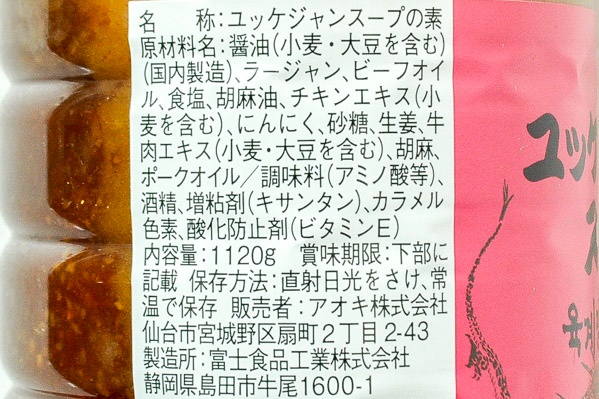 名　称:ユッケジャンスープの素
原材料名:醤油(小麦・大豆を含む)
(国内製造)、ラージャン、ビーフオイ
ル、食塩、胡麻油、チキンエキス(小
麦を含む)、にんにく、砂糖、生姜、牛
肉エキス(小麦・大豆を含む)、胡麻、
ポークオイル／調味料(アミノ酸等)、
酒精、増粘剤(キサンタン)、カラメル
色素、酸化防止剤(ビタミンE)
内容量:1120g　賞味期限:下部に
記載 保存方法:直射日光をさけ、常
温で保存 販売者:アオキ株式会社
仙台市宮城野区扇町２丁目２-43
製造所:富士食品工業株式会社
静岡県島田市牛尾1600-1
ユッケ
ス
육개